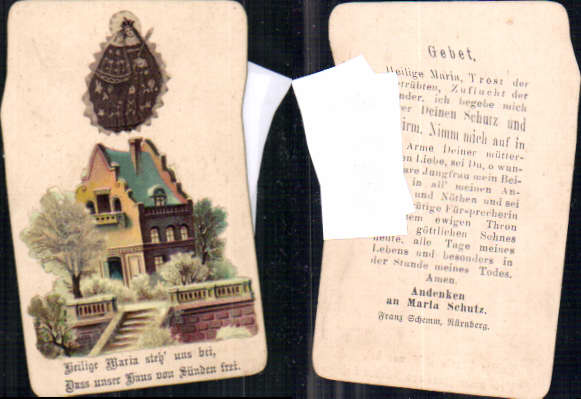 Heilige Maria steh' uns bei,
Dass unser Haus von Sünden frei.
Gebet.
Heilige Maria, Trost der
Zuflucht der
ich begebe mich
Deinen Schutz und
Nimm mich auf in
Arme Deiner mütter-
Liebe, sei Du, o wun-
Jungfrau mein Bei-
in all' meinen
und Nöthen und sei
Fürsprecherin
ewigen Thron
göttlichen Sohnes
heute, alle Tage meines
Lebens und besonders in
der Stunde meines Todes.
Amen.
Andenken
an Maria Schutz.
Franz Schemm, Nürnberg.